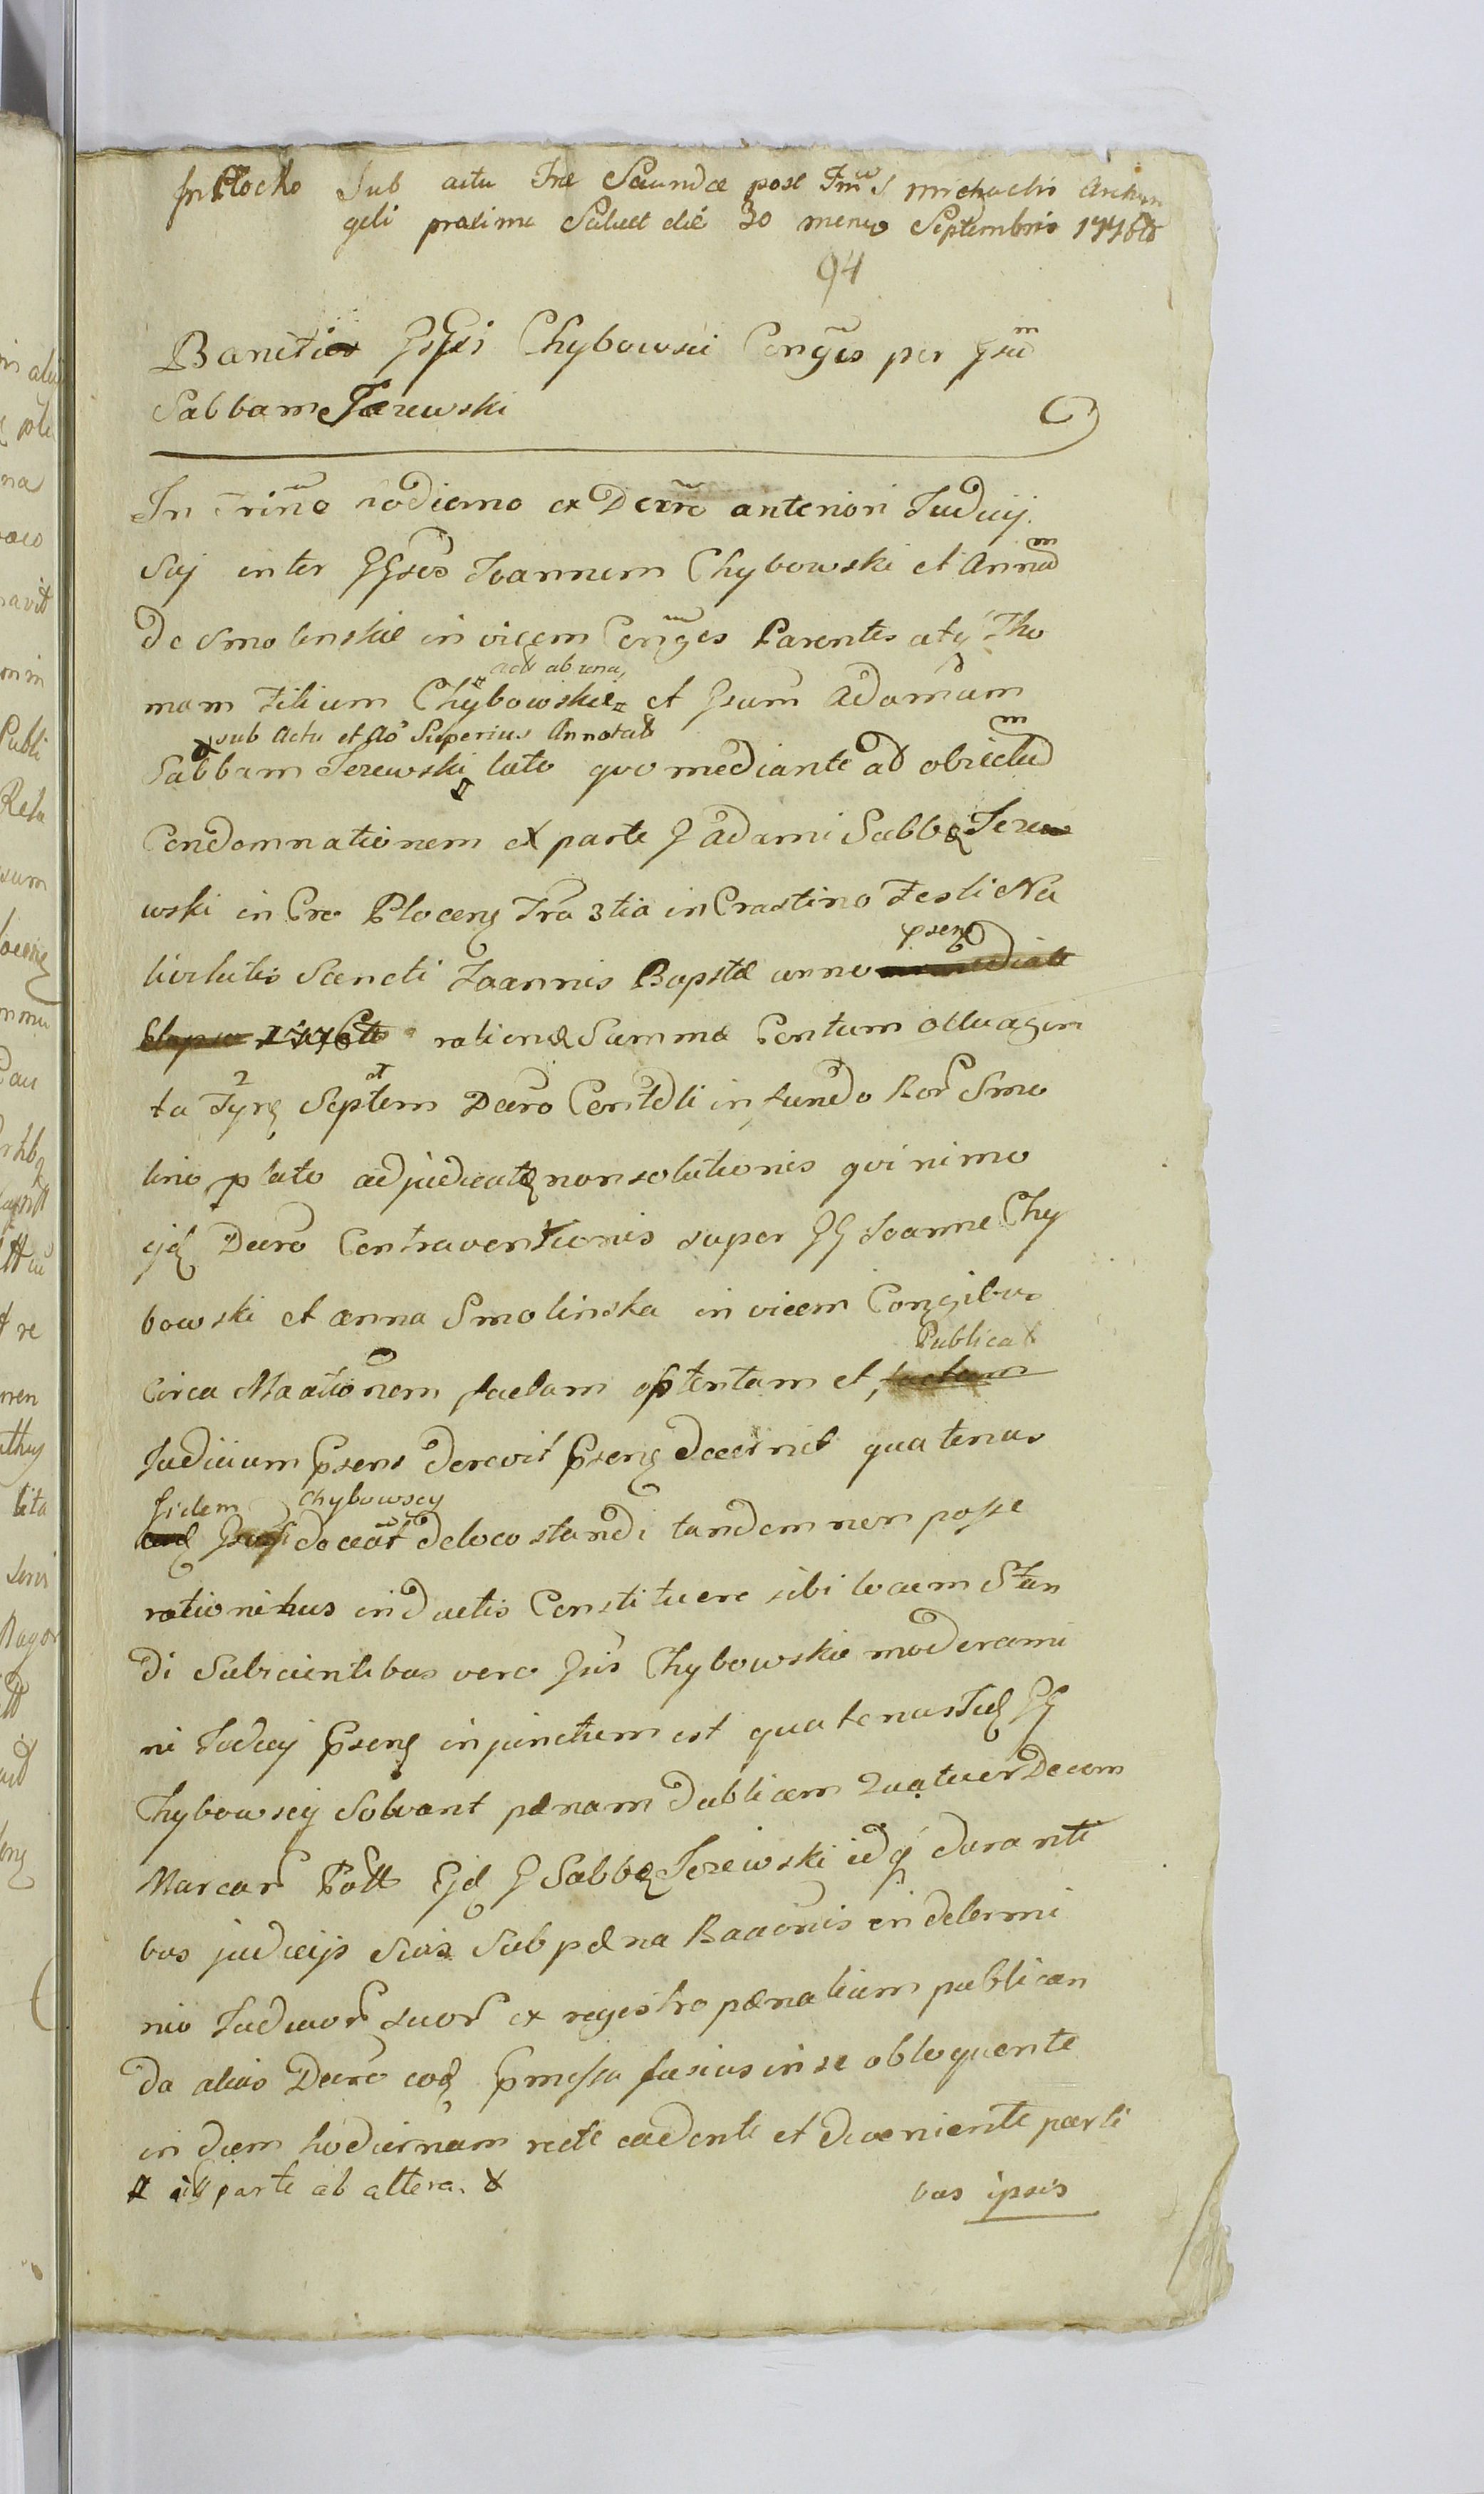 In Plocko Sub actu Frae Secundae post Fm S Michaelis Archan
geli proxima Scilicet die 30 mensis Septembris 1776to
94
Banitio GsGsi Chybowski Conges per Gsum
Sabbam Jezewski
In Trino hodierno ex Decreto anteriori Judicij
Sui inter GGsos Joannem Chybowski et Annam
de Smolinskie in vicem Conges Parentes atq Tho
mam Filium Chybowskie actt ab una, et Gsum Adamum
sub Actu et Ao Superius Annotatt
Sabbam Jezewski lato quo mediante ad obiectum
Condomnationem ex parte G Adami Sabbae Jezew
wski in Cro Plocens Fra 3tia in Crastino Festi Na
tivitatis Sancti Joannis Bapstae anno psenti
1776to ratione Summae Centum octuagin
ta Tyns Septem Decro Contdli in fundo Bor Smo
lino p lato adjudicatae non solutionis qvinimo
ejd Decro Contraventionis super GG Joanne Chy
bowski et Anna Smolinska in vicem Congibus
Publicat
Circa Maationem factam optentam et, factam
Judicium Psens decrevit Psens decernit quatenus
Iidem Chybowscy
doceat de loco standi tandem non posse
rationibus inductis Constituere sibi locum Stan
di Subicientibus vero Gsis Chybowskie moderami
ni Judicij Psens injunctum est quatenus Iid GG
Chybowscy Solvant paenam dublicem Quatuor Decem
Marcar Poll Ejd G Sabbae Jezewski idq duranti
bus judicijs Suis Sub paena Baaonis in determi
nio Judicior suor ex registro paenalium publican
da alias Decro eod Pmissa fusius in se obloquente
in diem hodiernam recte cadente et deveniente parti
parte ab altera.
bus ipsis